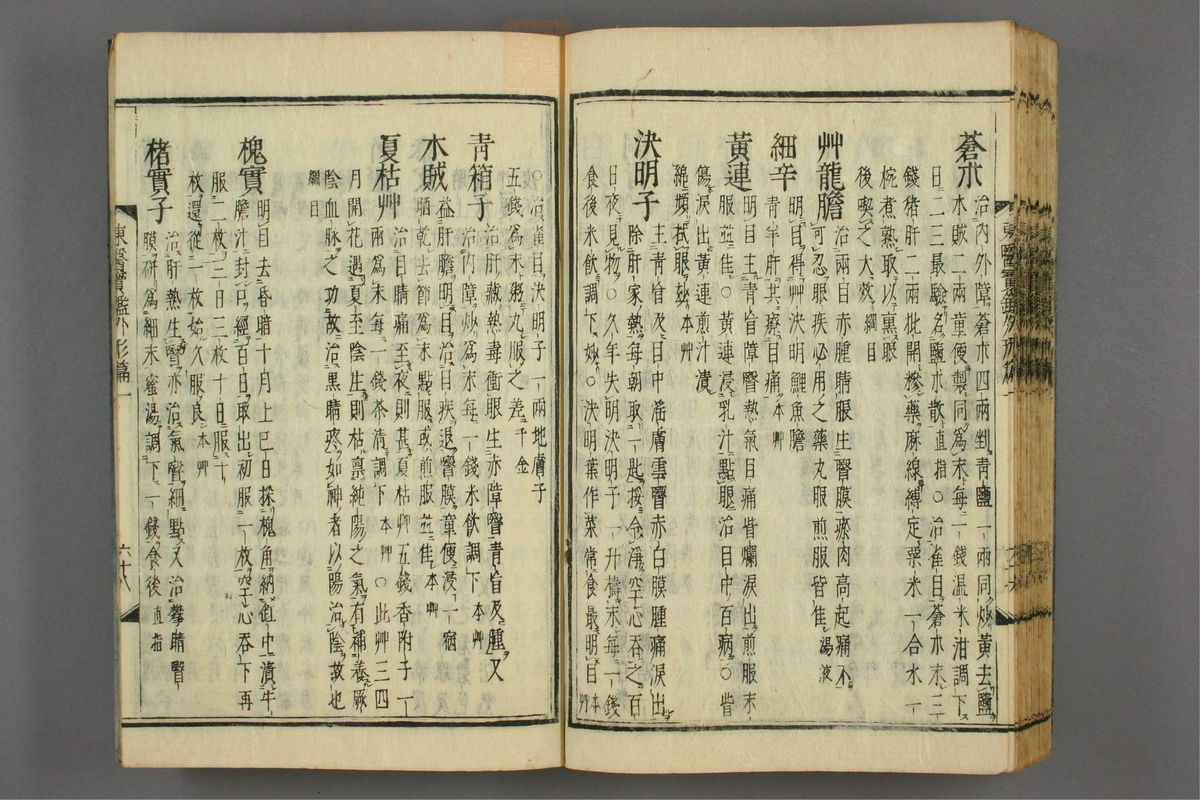 蒼朮
治內外障蒼朮四兩剉靑鹽一兩同炒黃去鹽
木賊二兩童便製同爲末每一錢温米泔調下
日二三最驗名鹽朮散直指○治雀目蒼朮末三
錢猪肝二兩批開糝藥麻線縛定粟米一合水一
椀煮熟取以熏眼
後喫之大效綱目
艸龍膽
治兩目赤腫睛脹生瞖膜瘀肉高起痛不
可忍眼疾必用之藥丸服煎服皆佳湯液
細辛
明目得艸決明鯉魚膽
靑羊肝共療目痛本艸
黃連
明目主靑盲障瞖熱氣目痛眥爛淚出煎服末
服並佳○黃連浸乳汁點眼治目中百病○眥
傷淚出黃連煎汁漬
綿頻拭眼妙本艸
決明子
主靑盲及目中淫膚雲瞖赤白膜腫痛淚出
除肝家熱每朝取一匙挼令淨空心吞之百
日夜見物○久年失明決明子一升擣末每二錢
食後米飮調下妙○決明葉作菜常食最明目本艸
○治雀目決明子一兩地膚子
五錢爲末粥丸服之差千金
靑箱子
治肝藏熱毒衝眼生赤障瞖靑盲及腫又
治內障炒爲末每一錢米飮調下本艸
木賊
益肝膽明目治目疾退瞖膜童便浸一宿
晒乾去節爲末點服或煎服並佳本艸
夏枯艸
治目睛痛至夜則甚夏枯艸五錢香附子一
兩爲末每一錢茶淸調下本艸○此艸三四
月開花遇夏至陰生則枯禀純陽之氣有補養厥
陰血脉之功故治黑睛疼如神者以陽治陰故也
綱目
槐實
明目去昏暗十月上巳日採槐角納缸中漬牛
膽汁封口經百日取出初服一枚空心吞下再
服二枚三日三枚十日服十
枚還從一枚始久服良本艸
楮實子
治肝熱生瞖亦治氣瞖細點又治攀睛瞖
膜硏爲細末蜜湯調下一錢食後直指
東醫寶鑑外形篇一
六十八